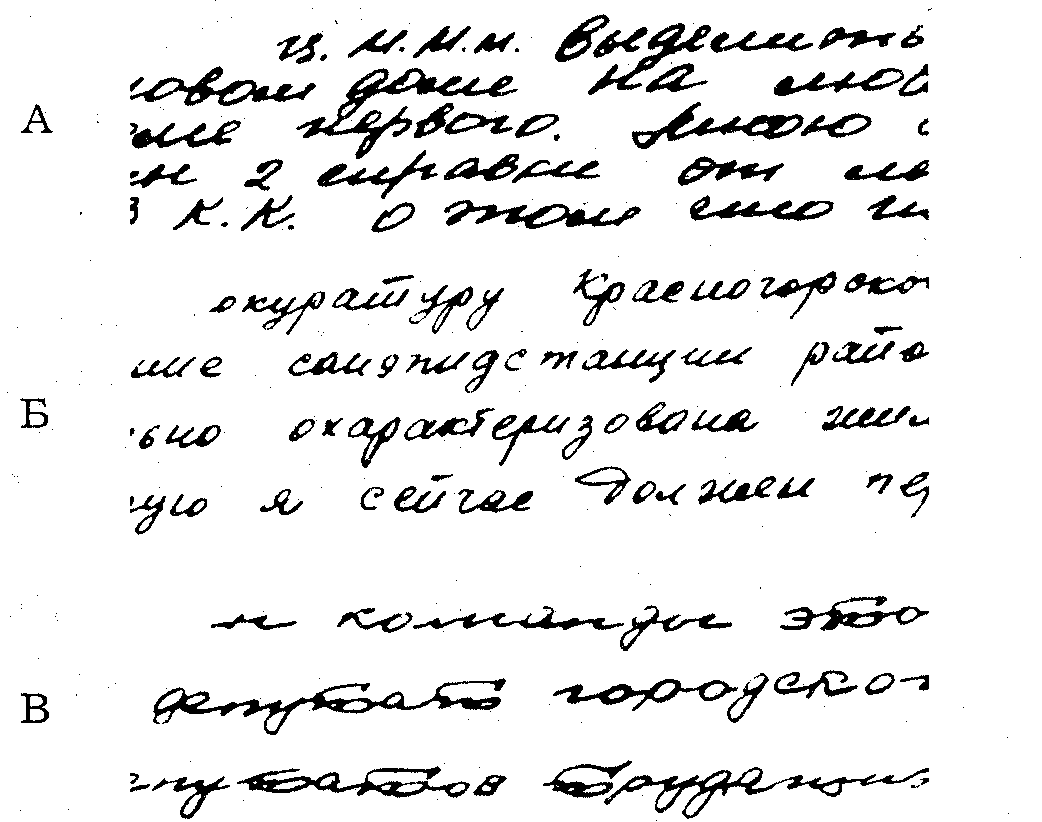 Ц. М. М. м. Выделить
А
овом доме на лю
еме первого.
2 справки от
К. К. о том что
окуратуру Красногорско
ние санэпидстанции райо
Б
ьно охарактеризована жил
ую я сейчас должен пе
команды это
В
депутат городског
путатов трудящих